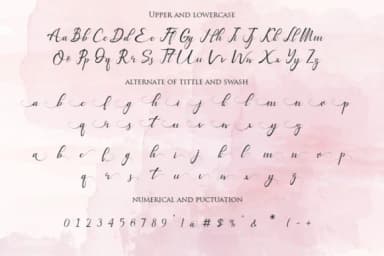 Upper and lowercase
Aa Bb Cc Dd Ee Ff Gg Hh Ii Jj Kk Ll Mm
Oo Pp Qq Rr Ss Tt Uu Vv Ww Xx Yy Zz
alternate of tittle and swash
a b c d e f g h i j k l m n o p
q r s t u v w x y z
a b c d e f g h i j k l m n o p
q r s t u v w x y z
numerical and puctuation
0 1 2 3 4 5 6 7 8 9
# $ % & * ( - +